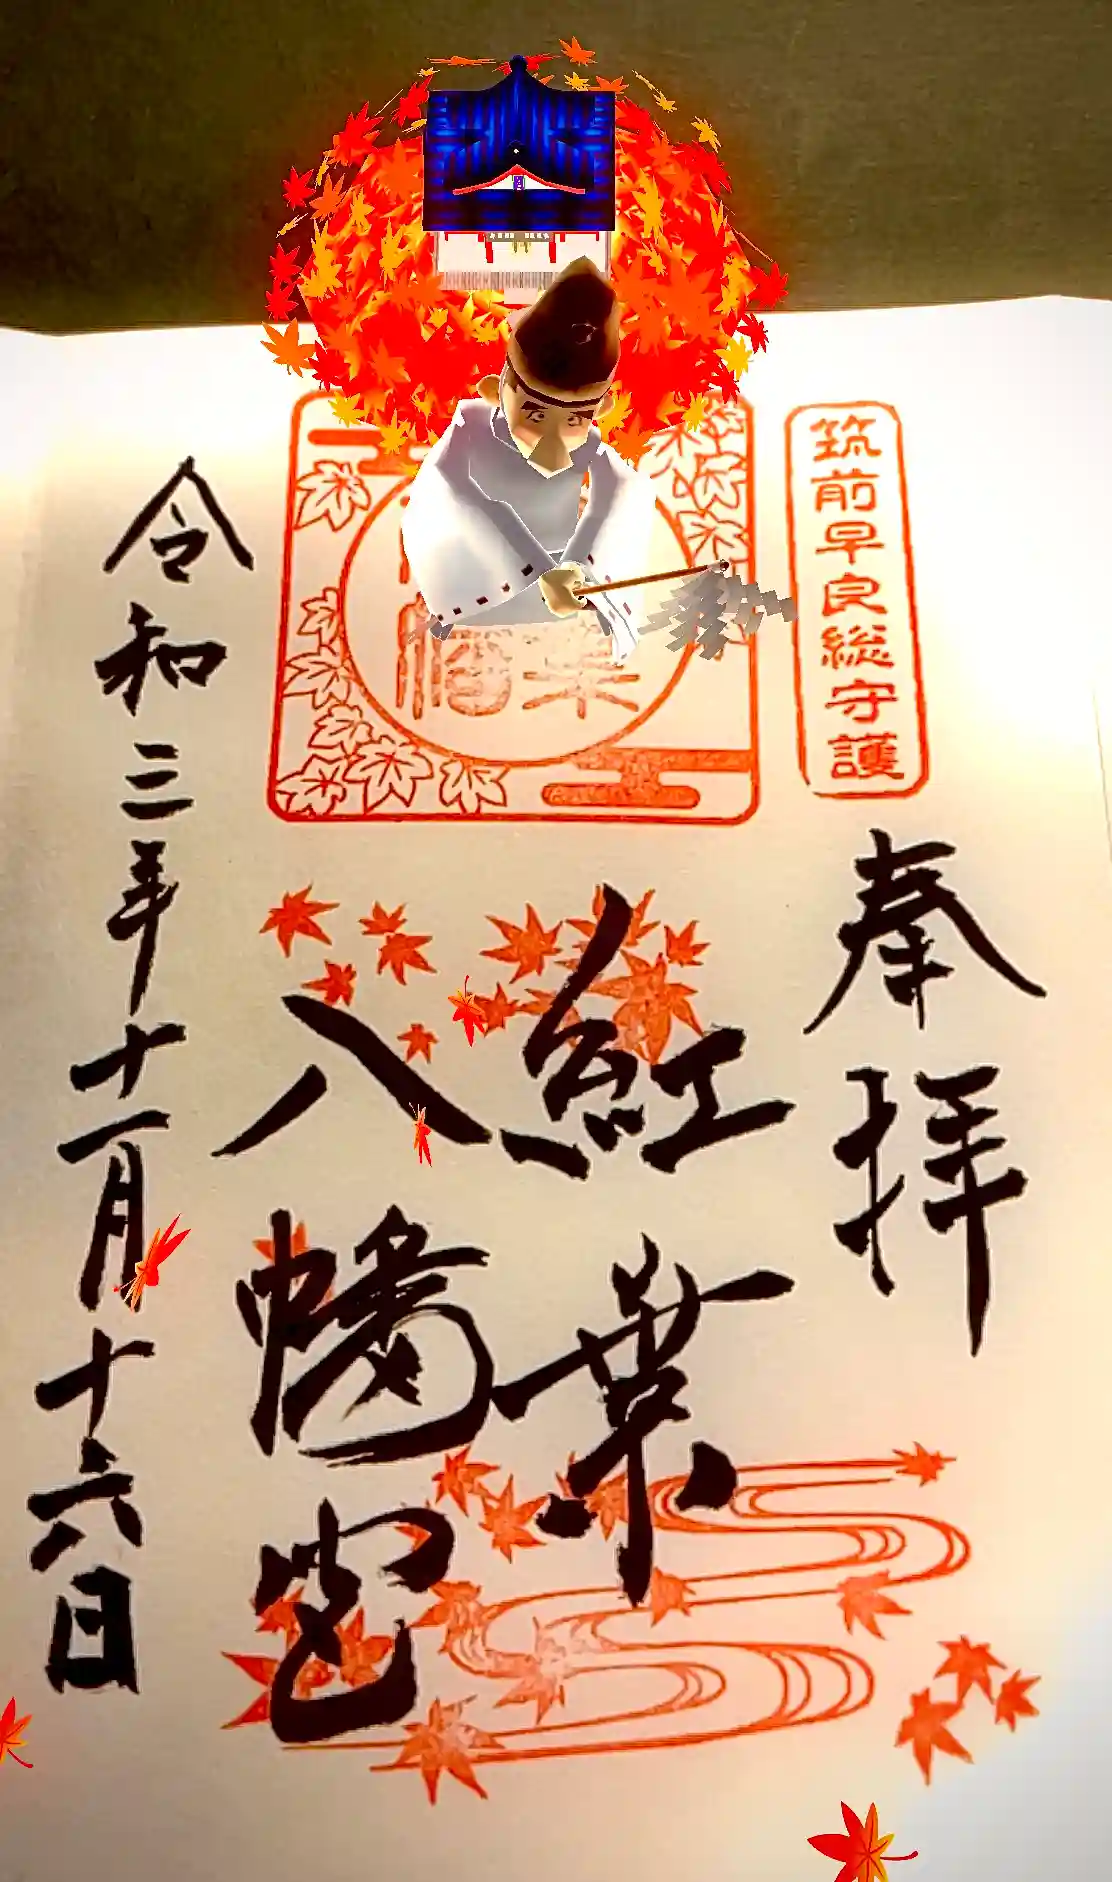 筑前早良総守護
奉拝
葉
幡
紅葉
八幡宮
令和三年十一月十六日